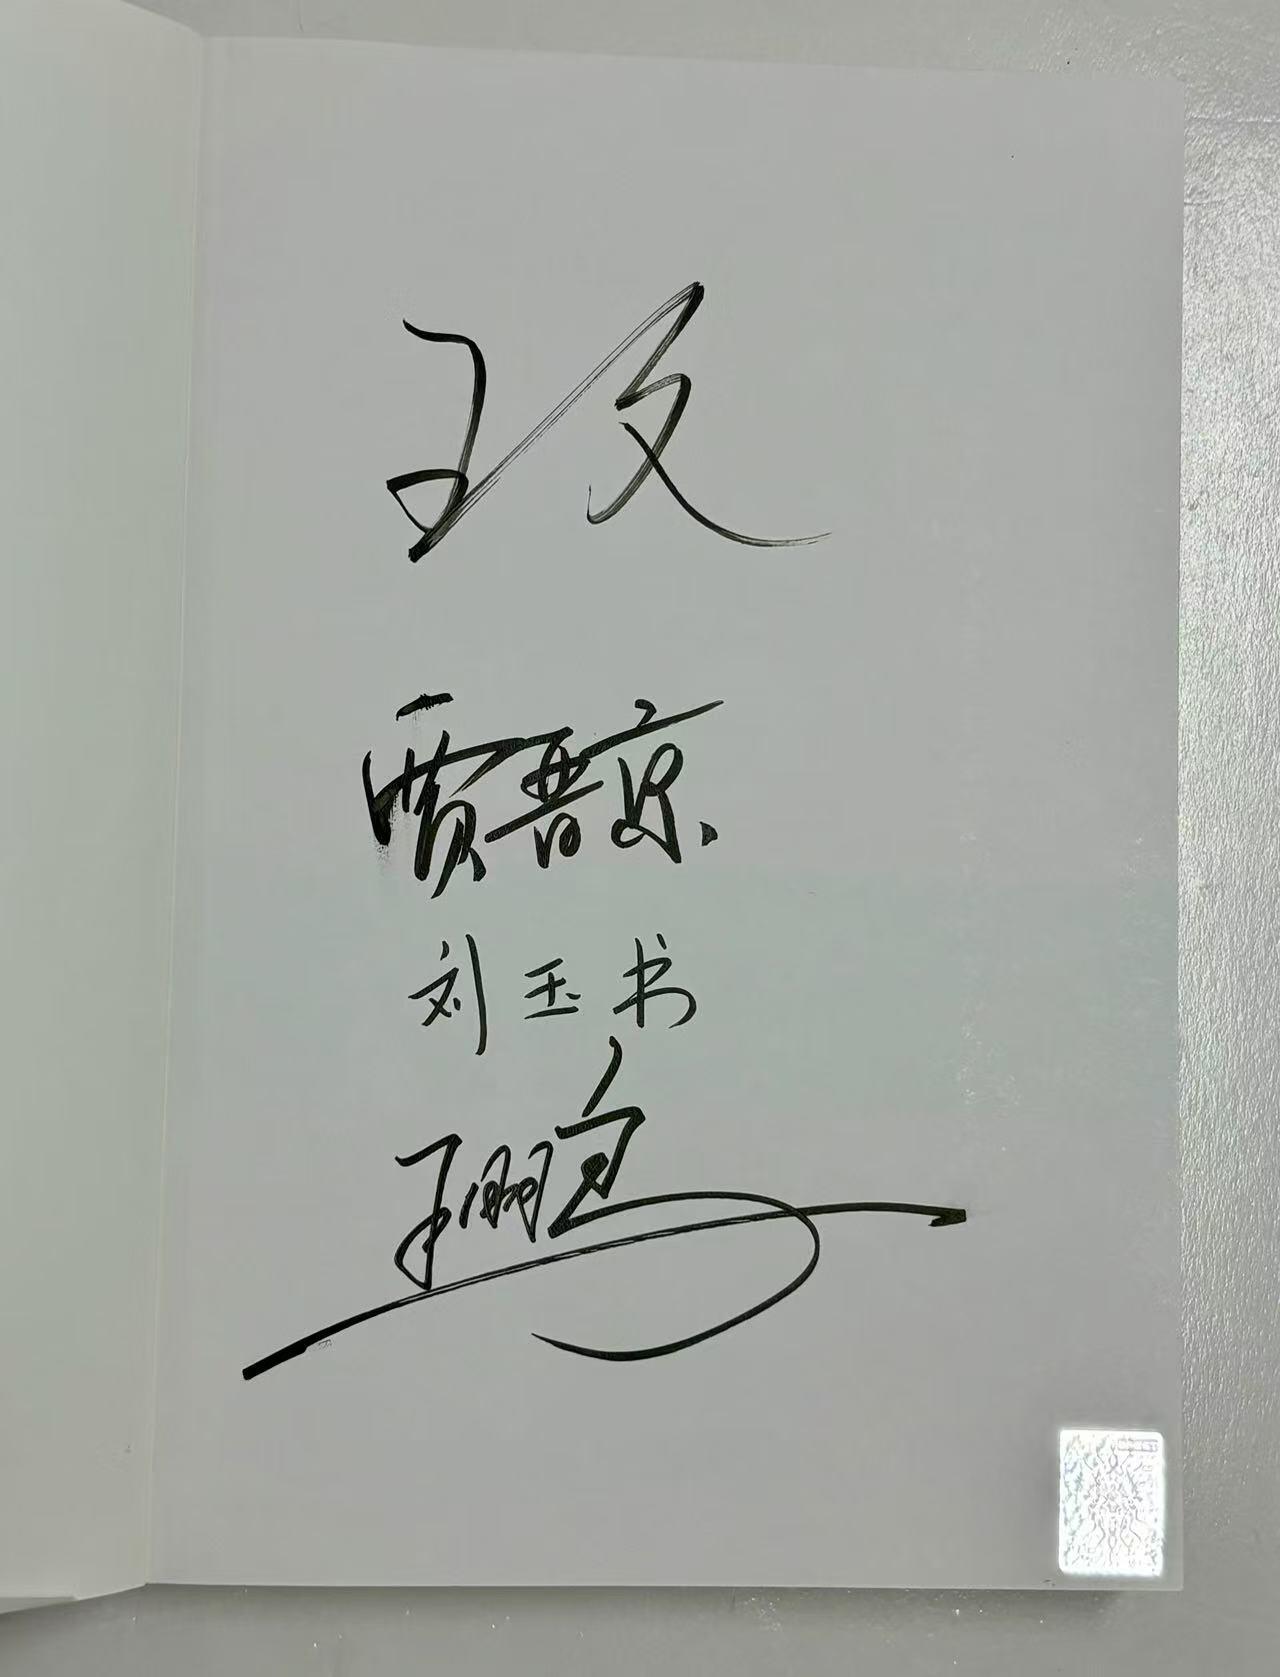 贾晋京
刘玉书
王鹏